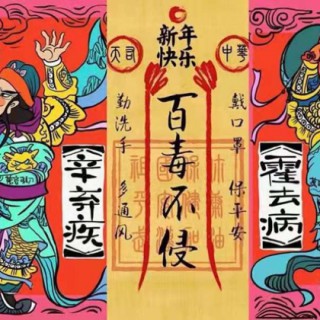 新年
快乐
中華
戴口罩 保平安
百毒不侵
勤洗手 多通风
【辛弃疾】
【霍去病】